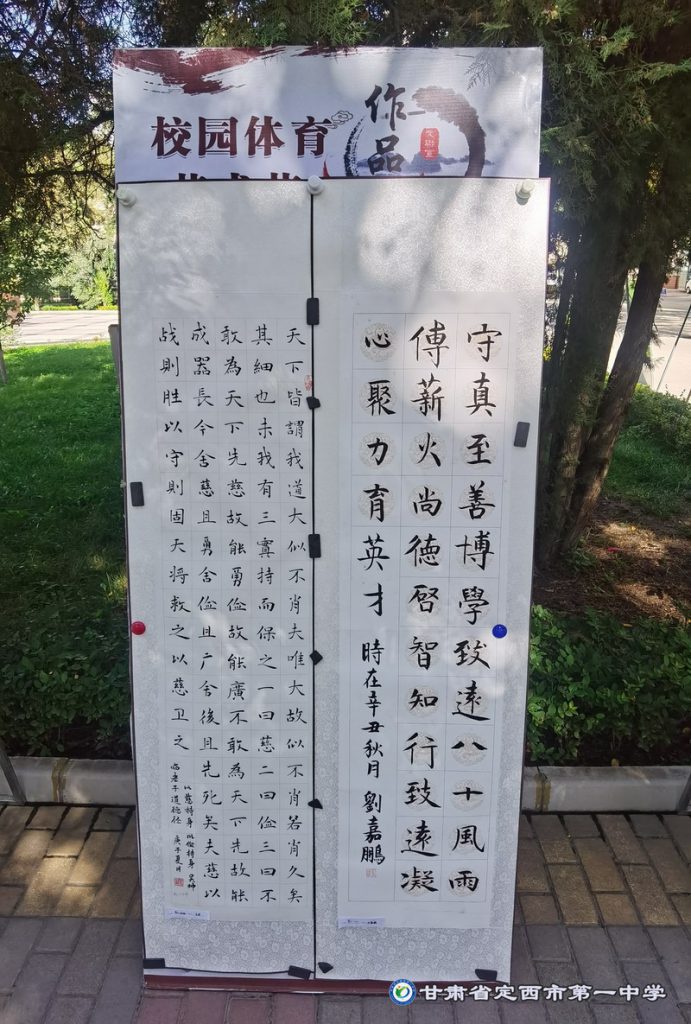 校园体育
作品
守真至善博學致遠八十風雨
傅薪火尚德启智知行致遠凝
心聚力育英才 時在辛丑秋月 劉嘉鵬
天下皆謂我道大似不肖夫唯大故似不肖若肖久矣
其細也夫我有三寳持而保之一曰慈二曰俭三曰不
敢為天下先慈故能勇俭故能廣不敢為天下先故能
成器長今舍慈且勇舍俭且广舍後且先死矣夫慈以
战則胜以守則固天將救之以慈卫之
以慈持身 以俭持身
临老子道德经 庚子夏月
甘肃省定西市第一中学